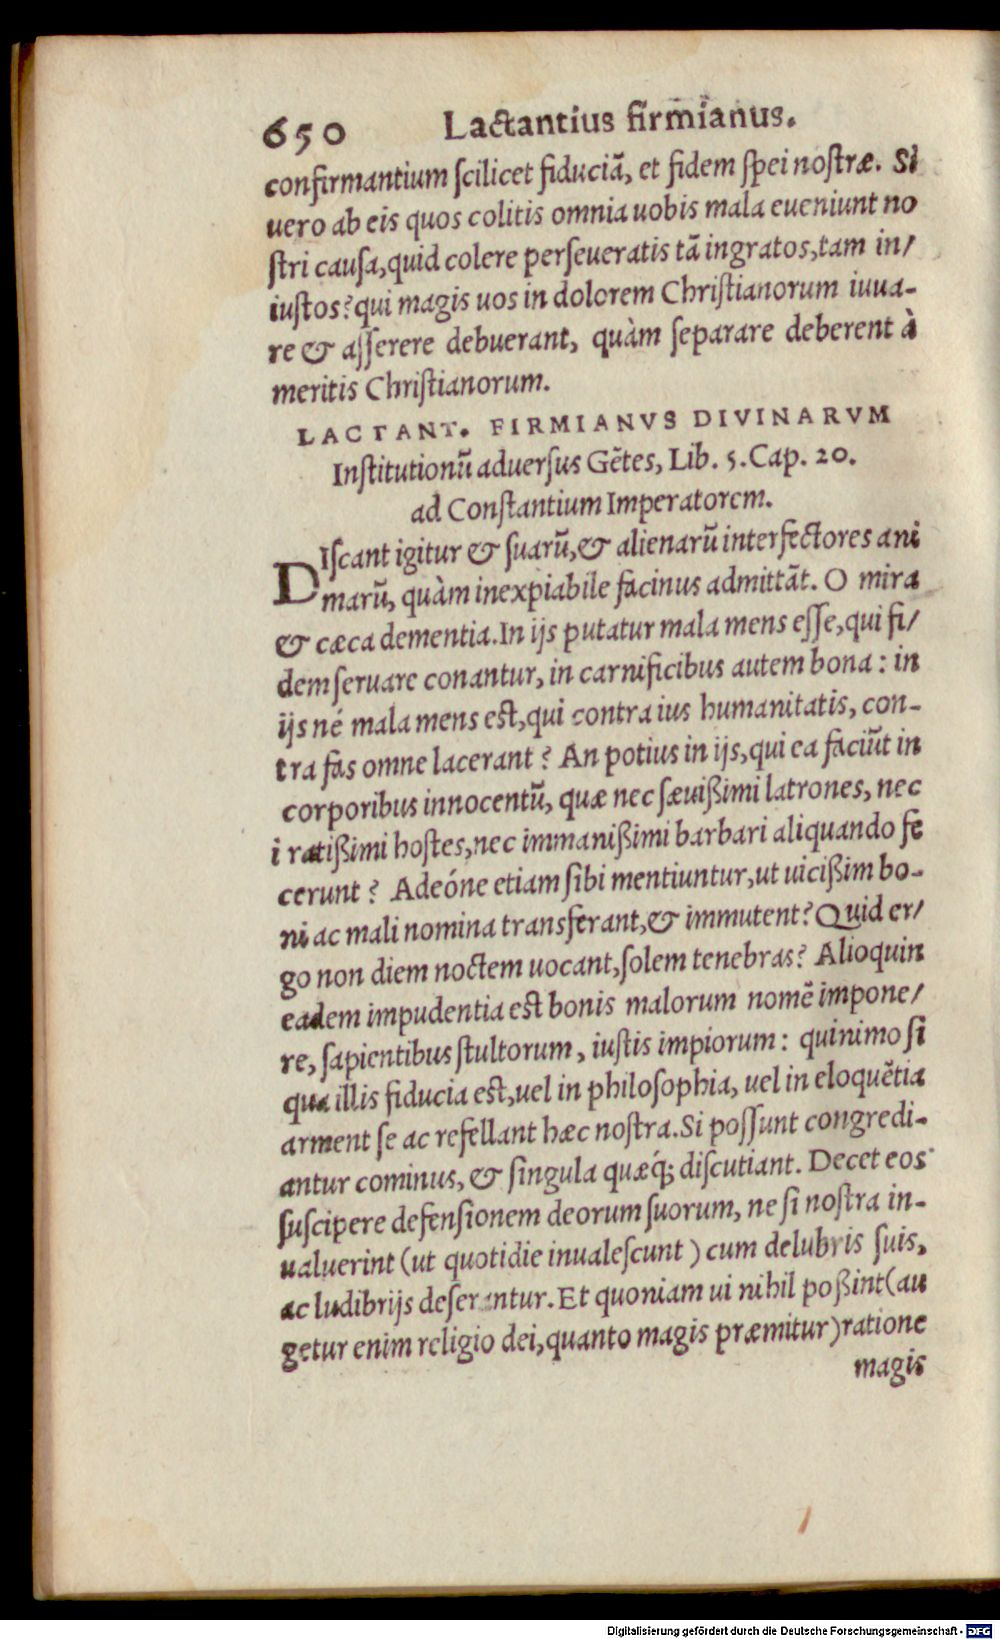 650 Lactantius firmianus.
confirmantium ſcilicet fiduciā, et fidem ſpei noſtræ. Si
uero ab eis quos colitis omnia uobis mala eueniunt no
ſtri cauſa, quid colere perſeueratis tā ingratos, tam in/
iuſtos? qui magis uos in dolorem Chriſtianorum iuua-
re & aſſerere debuerant, quàm ſeparare deberent à
meritis Chriſtianorum.
LACTANT. FIRMIANVS DIVINARVM
Inſtitutionū aduerſus Gētes, Lib. 5. Cap. 20.
ad Conſtantium Imperatorem.
DIſcant igitur & ſuarū, & alienarū interfectores ani
marū, quàm inexpiabile facinus admittāt. O mira
& cæca dementia. In ijs putatur mala mens eſſe, qui fi/
dem ſeruare conantur, in carnificibus autem bona: in
ijs né mala mens eſt, qui contra ius humanitatis, con-
tra fas omne lacerant? An potius in ijs, qui ea faciūt in
corporibus innocentū, quæ nec ſæuißimi latrones, nec
iratißimi hoſtes, nec immanißimi barbari aliquando fe
cerunt? Adeóne etiam ſibi mentiuntur, ut uicißim bo-
ni ac mali nomina transferant, & immutent? Quid er/
go non diem noctem uocant, ſolem tenebras? Alioquin
eadem impudentia eſt bonis malorum nomē impone/
re, ſapientibus ſtultorum, iuſtis impiorum: quinimo ſi
qua illis fiducia eſt, uel in philoſophia, uel in eloquētia
arment ſe ac refellant hæc noſtra. Si poſſunt congredi-
antur cominus, & ſingula quæq́; diſcutiant. Decet eos
ſuſcipere defenſionem deorum ſuorum, ne ſi noſtra in-
ualuerint (ut quotidie inualeſcunt) cum delubris ſuis,
ac ludibrijs deſerantur. Et quoniam ui nihil poßint (au
getur enim religio dei, quanto magis præmitur) ratione
magis
Digitalisierung gefördert durch die Deutsche Forschungsgemeinschaft - DFG